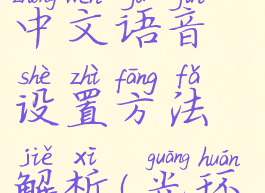 zhōng wén yǔ yīn
中文语音
shè zhì fāng fǎ
设置方法
jiě xī guāng huán
解析(光环